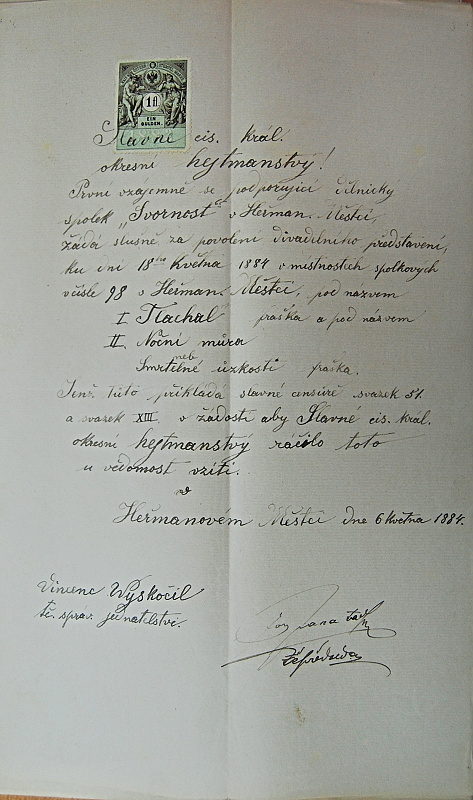 1 fl
EIN
GULDEN.
Slavné cis. král.
okresní hejtmanstvý!
První vzájemně se podporující dělnický
spolek „Svornost" v Heřman. Městci,
žádá slušně za povolení divadelního představení,
ku dni 18ho Května 1884 v místnostech spolkových
včísle 98 v Heřman. Městci, pod názvem
I. Tlachal fraška a pod názvem
II. Noční můra
neb
Smrtelné úzkosti fraška.
tuto příkládá slavné censuře svazek 51.
a svazek XIII. v žádosti aby Slavné cis. král.
okresní hejtmanstvý ráčilo toto
u vědomost vzíti.
v
Heřmanovém Městci dne 6 Května 1884.
Vincenc Wyskočil
tč. správ. jednatelství.